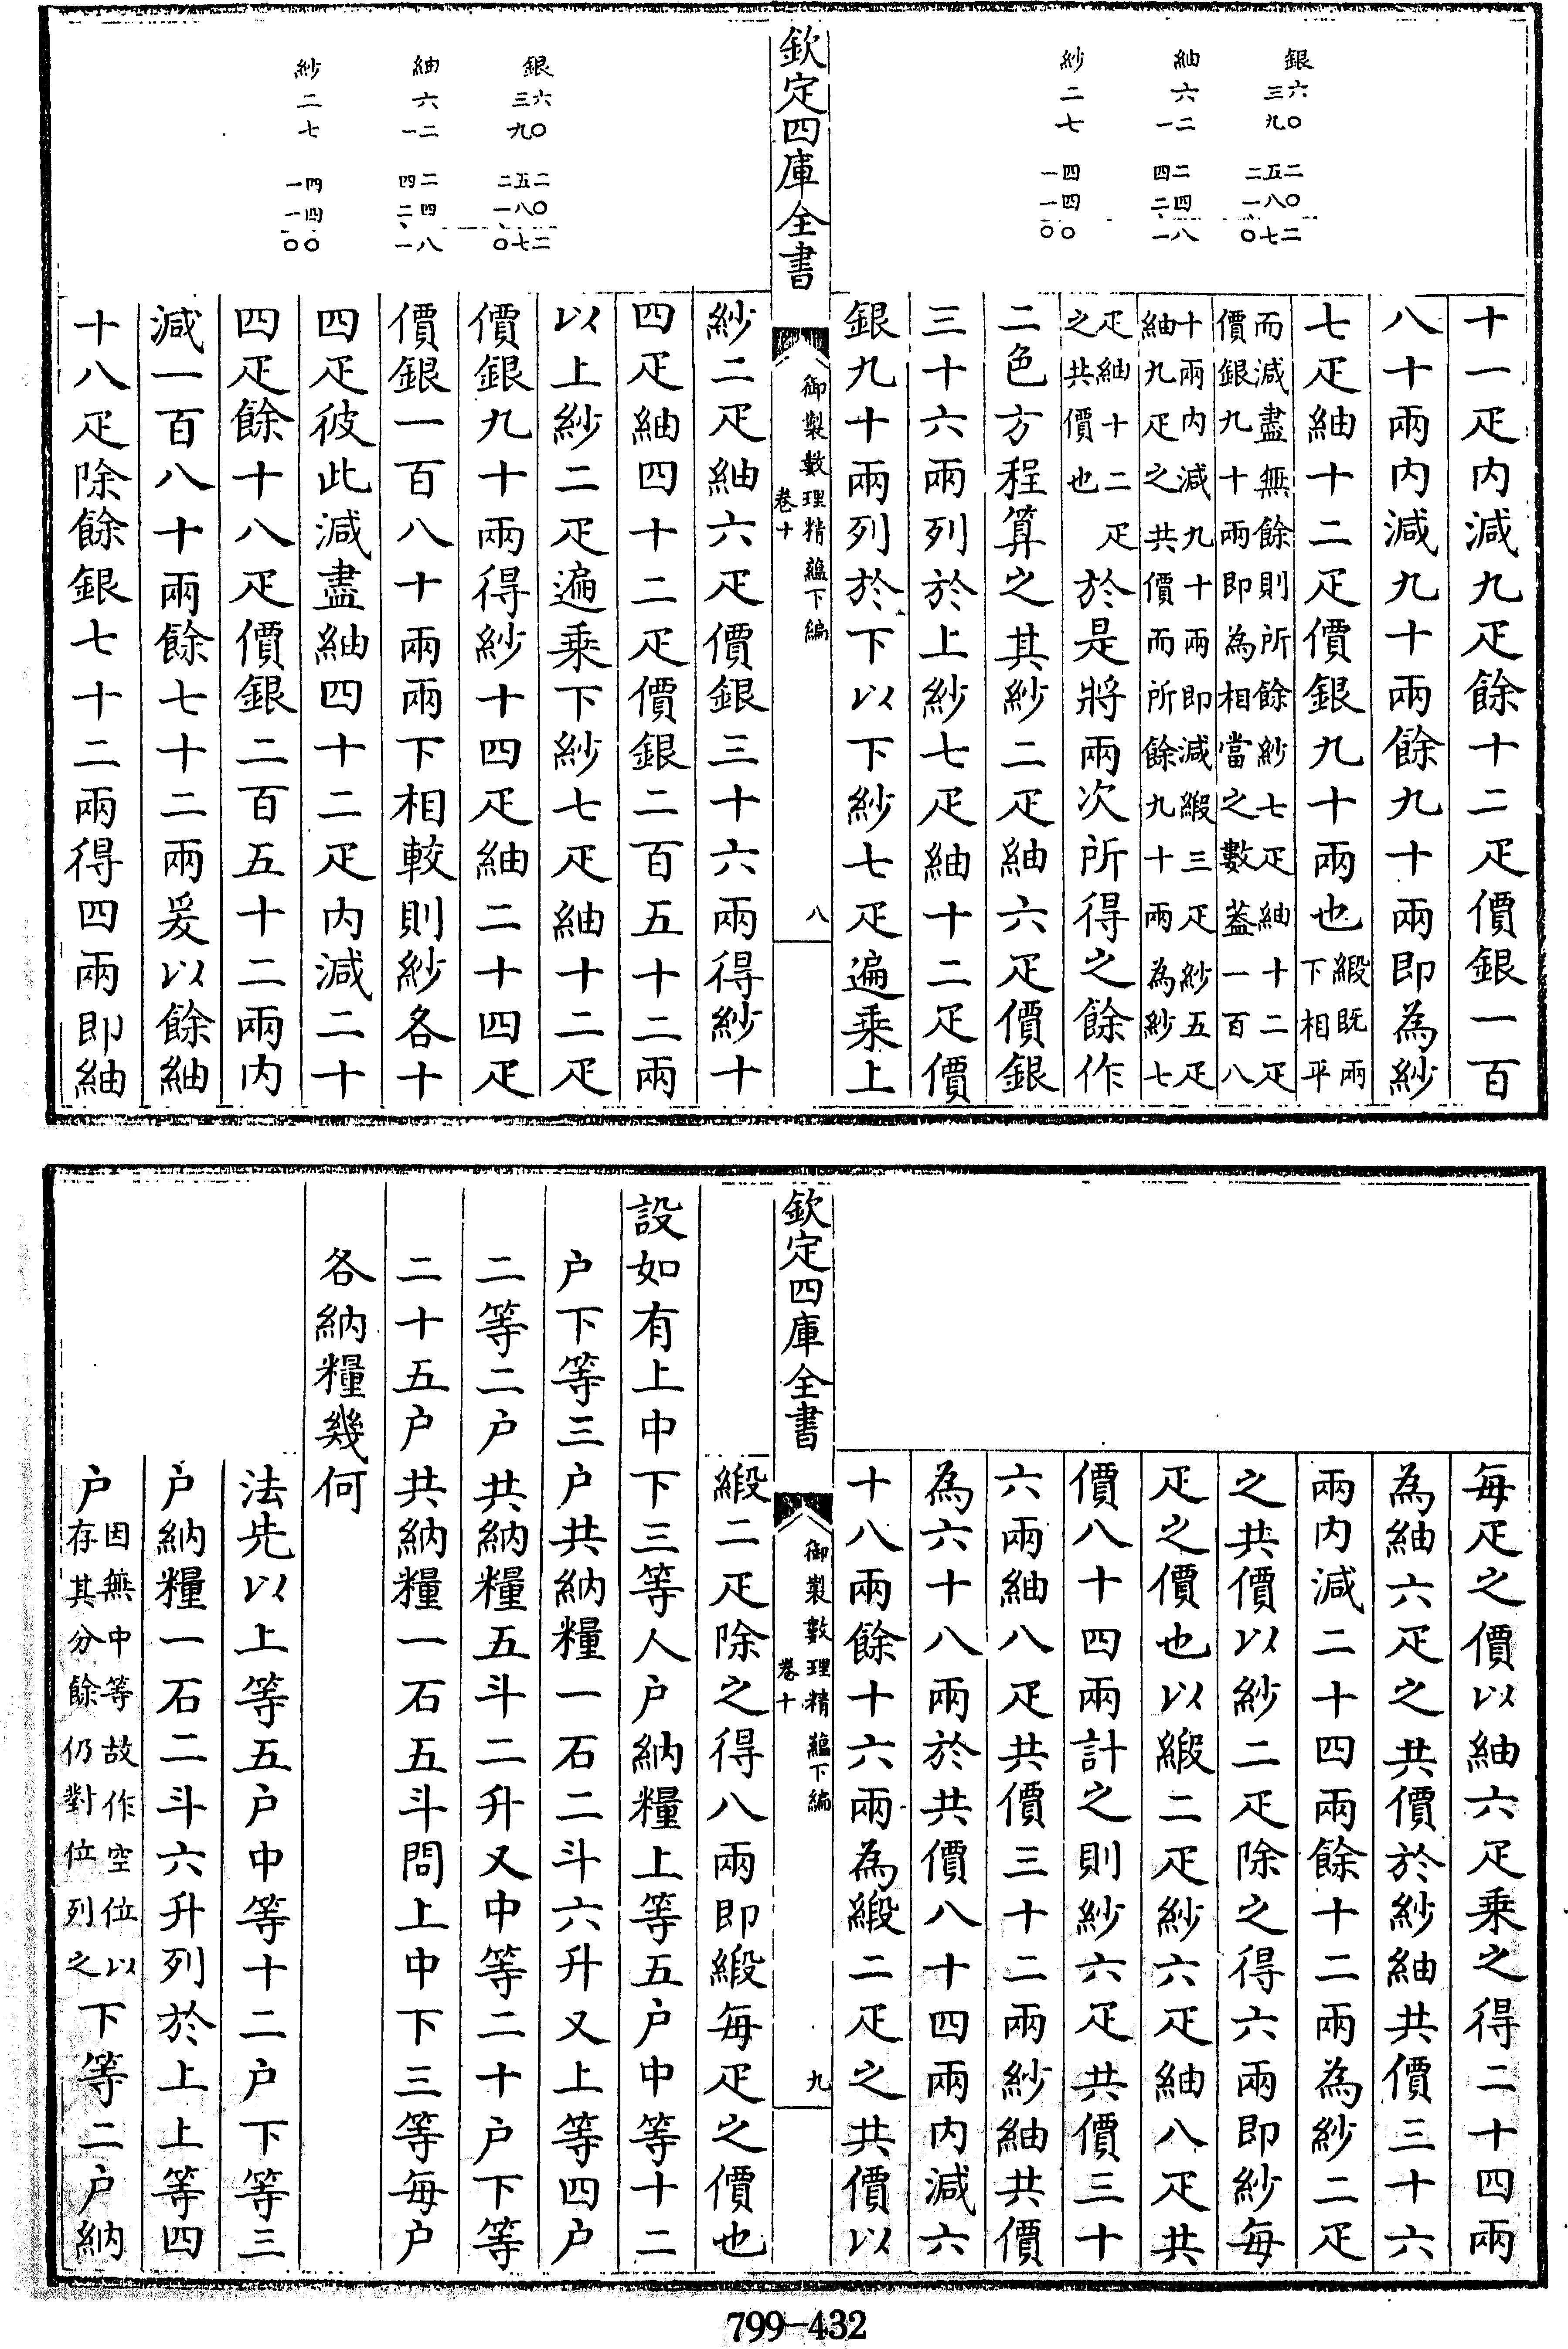 銀
三六
九〇
二五二
一八〇
〇七二
紬
六
一二
四二
二四
一八
紗
二
七
一四
一四
〇〇
十一疋内減九疋餘十二疋價銀一百
八十兩内減九十兩餘九十兩即為紗
七疋紬十二疋價銀九十兩也緞既兩下相平
而減盡無餘則所餘紗七疋紬十二疋
價銀九十兩即為相當之數蓋一百八
十兩内減九十兩即減緞三疋紗五疋
紬九疋之共價而所餘九十兩為紗七
疋紬十二疋之共價也於是將兩次所得之餘作
二色方程算之其紗二疋紬六疋價銀
三十六兩列於上紗七疋紬十二疋價
銀九十兩列於下以下紗七疋遍乘上
欽定四庫全書
御製數理精蘊下編
卷十
八
銀
三六
九〇
二五二
一八〇
〇七二
紬
六
一二
四二
二四
一八
紗
二
七
一四
一四
〇〇
紗二疋紬六疋價銀三十六兩得紗十
四疋紬四十二疋價銀二百五十二兩
以上紗二疋遍乘下紗七疋紬十二疋
價銀九十兩得紗十四疋紬二十四疋
價銀一百八十兩兩下相較則紗各十
四疋彼此減盡紬四十二疋内減二十
四疋餘十八疋價銀二百五十二兩内
減一百八十兩餘七十二兩爰以餘紬
十八疋除餘銀七十二兩得四兩即紬
每疋之價以紬六疋乘之得二十四兩
為紬六疋之共價於紗紬共價三十六
兩内減二十四兩餘十二兩為紗二疋
之共價以紗二疋除之得六兩即紗每
疋之價也以緞二疋紗六疋紬八疋共
價八十四兩計之則紗六疋共價三十
六兩紬八疋共價三十二兩紗紬共價
為六十八兩於共價八十四兩内減六
十八兩餘十六兩為緞二疋之共價以
欽定四庫全書
御製數理精蘊下編
卷十
九
緞二疋除之得八兩即緞每疋之價也
設如有上中下三等人户納糧上等五户中等十二
户下等三户共納糧一石二斗六升又上等四户
二等二户共納糧五斗二升又中等二十户下等
二十五户共納糧一石五斗問上中下三等每户
各納糧幾何
法先以上等五户中等十二户下等三
户納糧一石二斗六升列於上上等四
户因無中等故作空位以存其分餘仍對位列之下等二户納
799-432